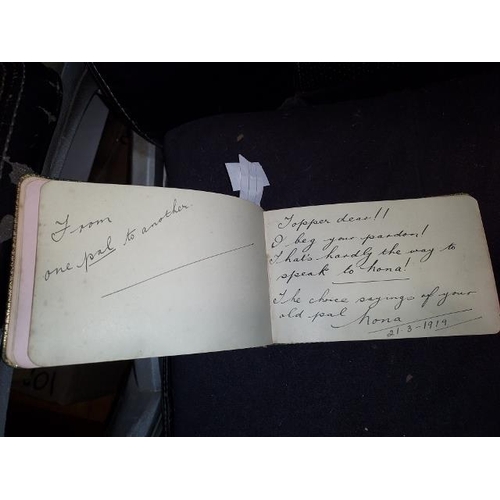 From
one pal to another.
Topper dear!!
I beg your pardon!
That's hardly the way to
speak to Nona!
The choice sayings of your
old pal Nona
21-3-1919